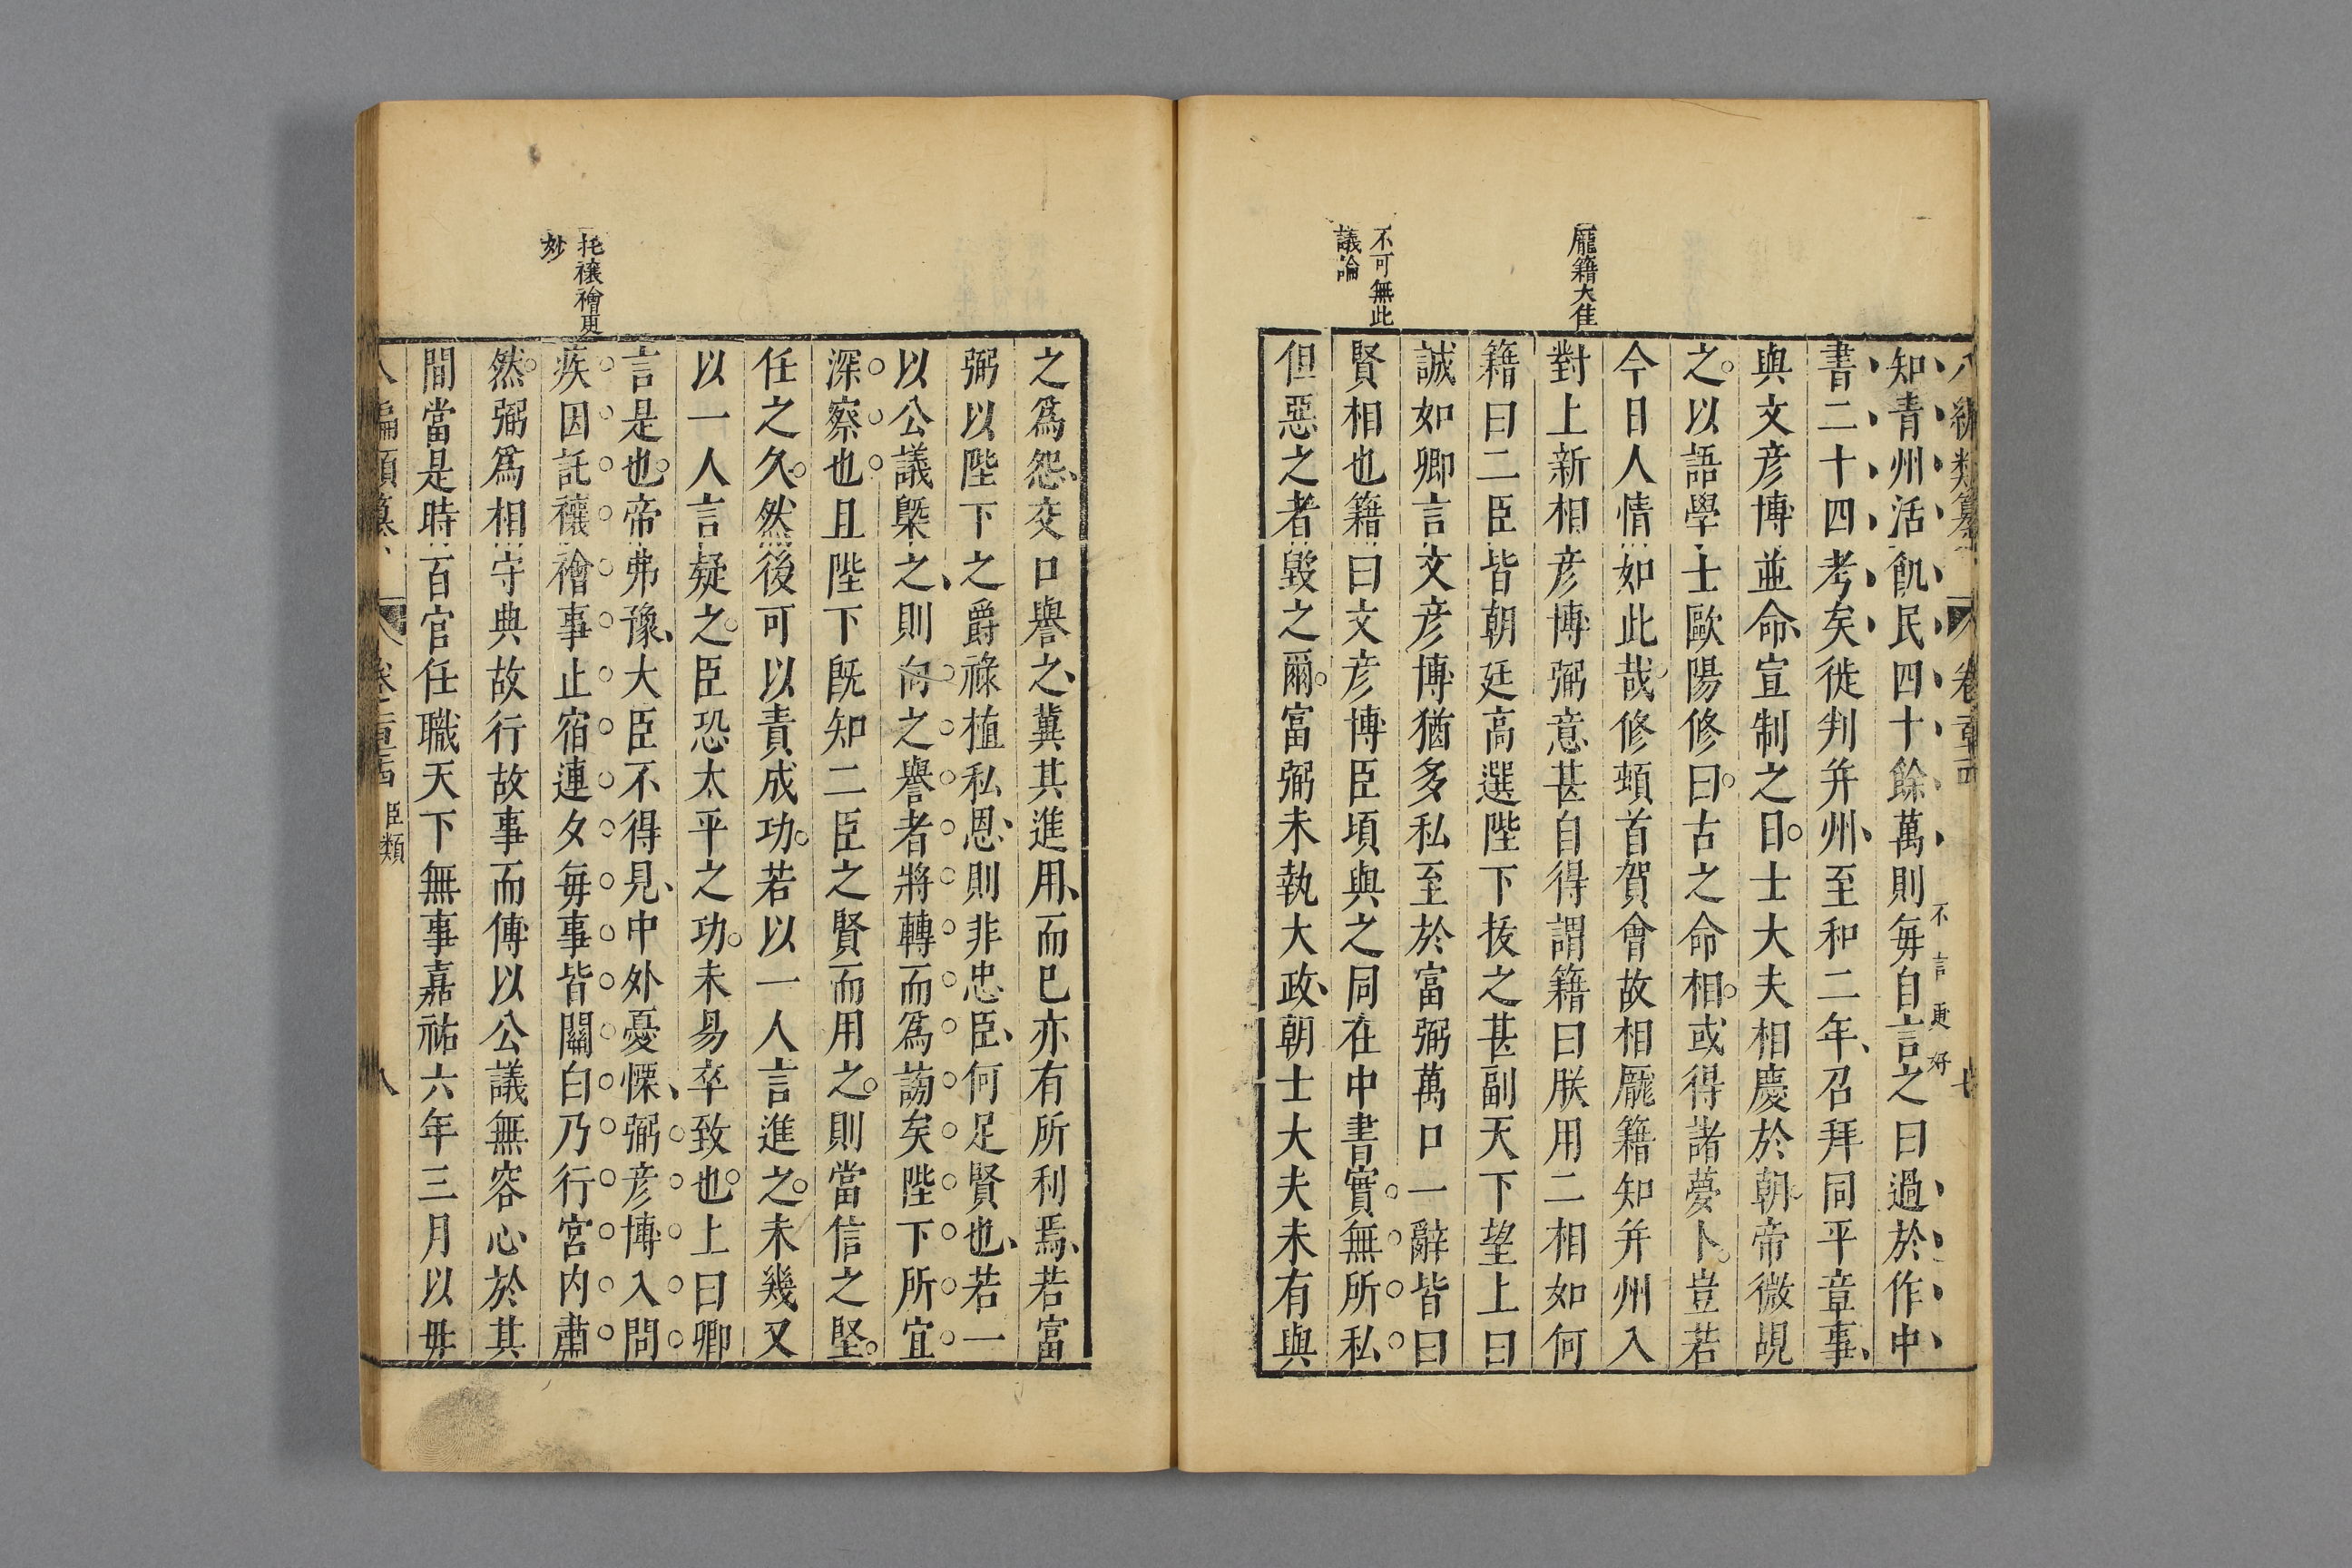 知青州活飢民四十餘萬則每自言之曰過於作中
不言更好
書二十四考矣徙判并州至和二年召拜同平章事
與文彥博並命宣制之日士大夫相慶於朝帝微覘
之以語學士歐陽修曰古之命相或得諸夢卜豈若
今日人情如此哉修頓首賀會故相龐籍知并州入
龐籍大佳
對上新相彥博弼意甚自得謂籍曰朕用二相如何
籍曰二臣皆朝廷高選陛下拔之甚副天下望上曰
誠如卿言文彥博猶多私至於富弼萬口一辭皆曰
不可無此
議論
賢相也籍曰文彥博臣頃與之同在中書實無所私
但惡之者毀之爾富弼未執大政朝士大夫未有與
之爲怨交口譽之冀其進用而已亦有所利焉若富
弼以陛下之爵祿植私恩則非忠臣何足賢也若一
以公議槩之則向之譽者將轉而爲謗矣陛下所宜
深察也且陛下既知二臣之賢而用之則當信之堅
任之久然後可以責成功若以一人言進之未幾又
以一人言疑之臣恐太平之功未易卒致也上曰卿
言是也帝弗豫大臣不得見中外憂慄弼彥博入問
托禳禬更
妙
疾因託禳禬事止宿連夕每事皆關白乃行宮內肅
然弼爲相守典故行故事而傅以公議無容心於其
間當是時百官任職天下無事嘉祐六年三月以毋
臣類
八